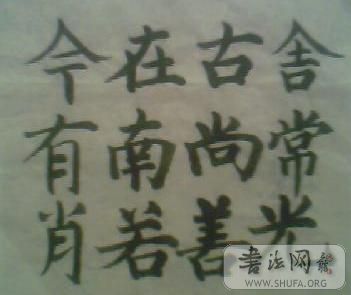 今在古舍
有南尚常
肖若善光
书法网
WWW.SHUFA.ORG